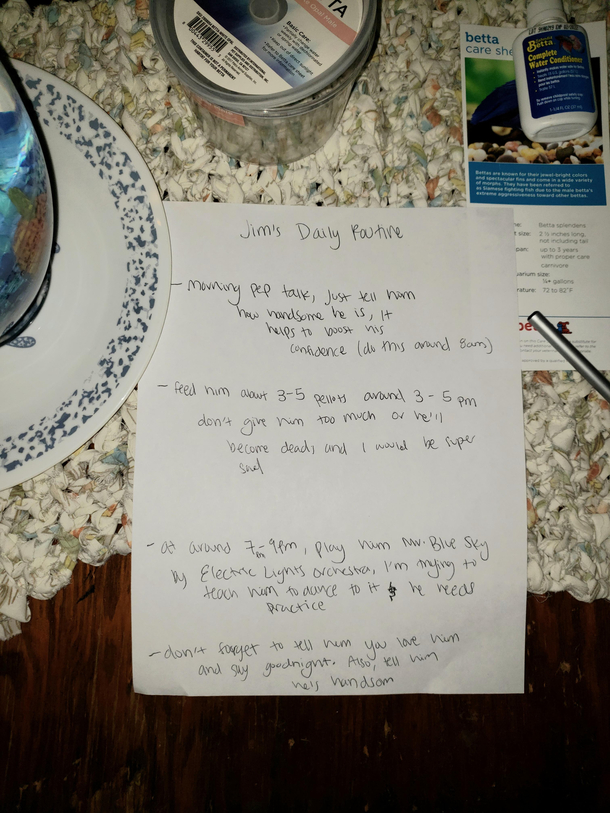 BETTA
Basic Care:
betta
care she
Betta
Complete
Water Conditioner
Bettas are known for their jewel-bright colors
and spectacular fins and come in a wide variety
of morphs. They have been referred to
as Siamese fighting fish due to the male betta's
extreme aggressiveness toward other bettas.
Betta splendens
size: 2 ½ inches long,
not including tail
pan: up to 3 years
with proper care
carnivore
uarium size:
¼+ gallons
rature: 72 to 82°F
Jim's Daily Routine
- Morning pep talk, just tell him
how handsome he is, it
helps to boost his
confidence (do this around 8am)
- feed him about 3-5 pellets around 3-5 pm
don't give him too much or he'll
become dead, and I would be super
sad
- at around 7-9pm, play him Mr. Blue Sky
by Electric Lights Orchestra, I'm trying to
teach him to dance to it he needs
practice
- don't forget to tell him you love him
and say goodnight. Also, tell him
he's handsom